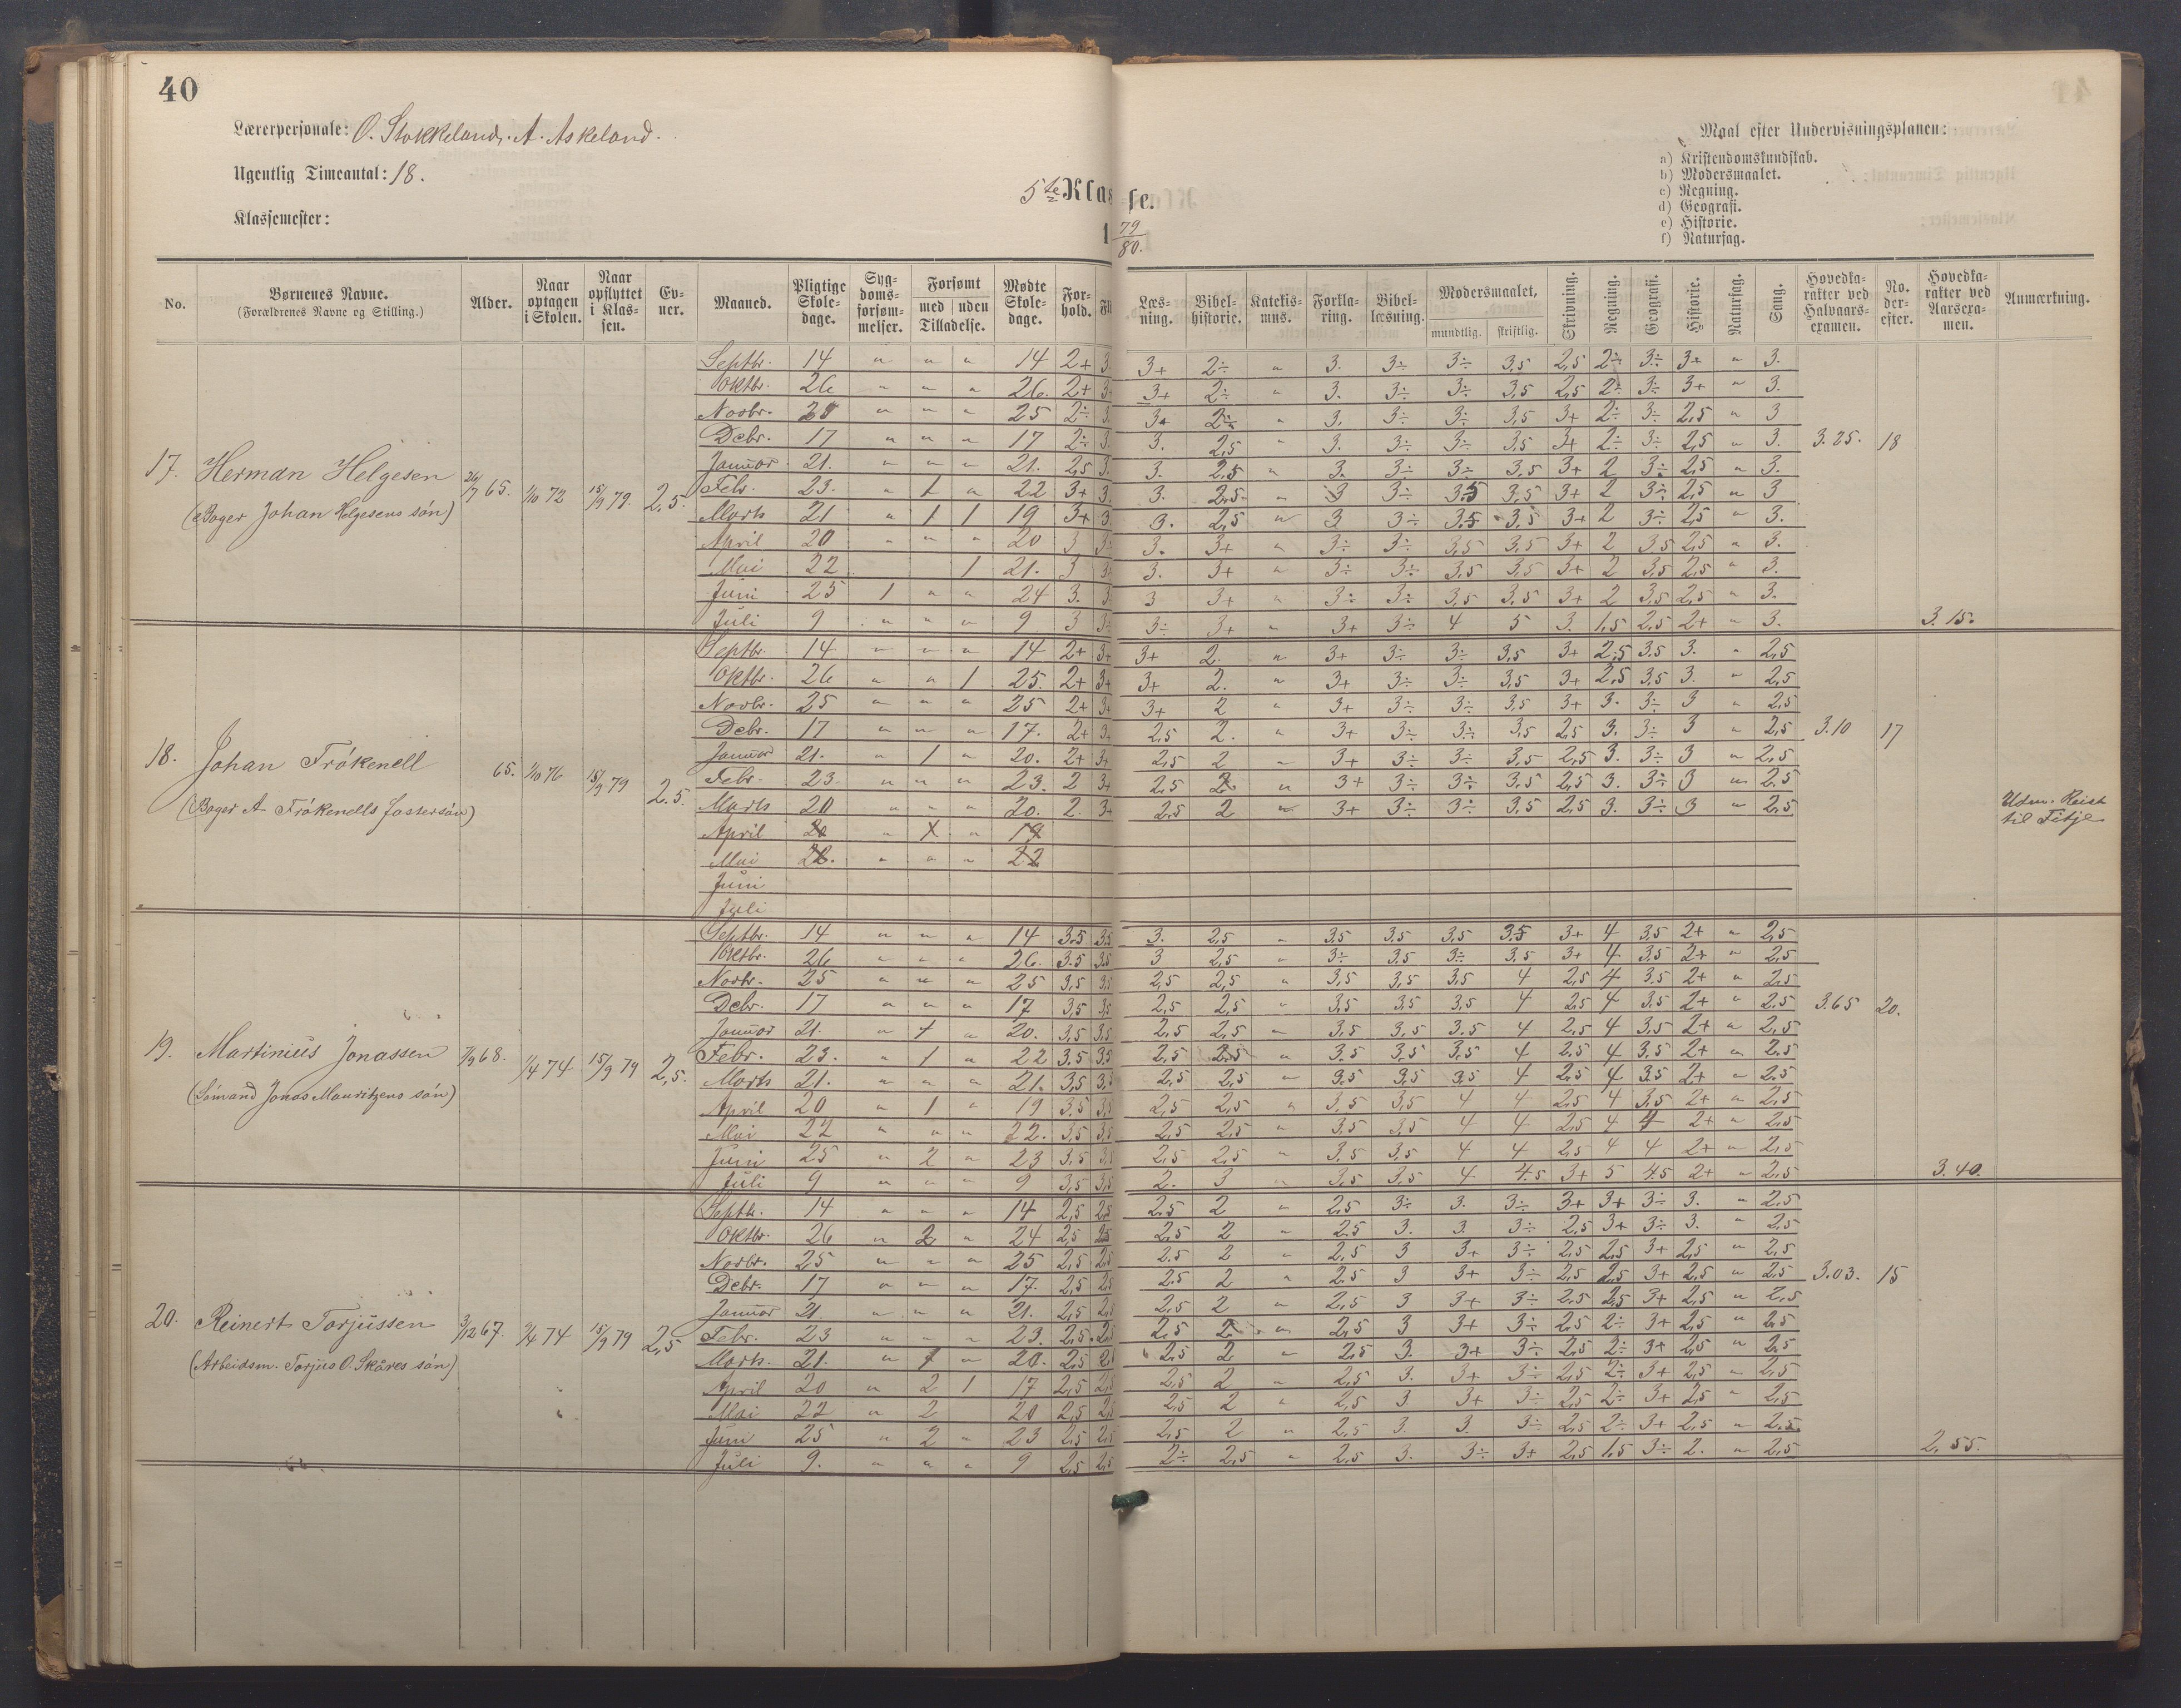 40
Lærerpersonale: O. Stokkeland, A. Askeland.
Ugentlig Timeantal: 18.
Klassemester:
5te Klasse.
1 79/80.
Maal efter Undervisningsplanen:
a) Kristendomskundskab.
b) Modersmaalet.
c) Regning.
d) Geografi.
e) Historie.
f) Naturfag.
No. Børnenes Navne. (Forældrenes Navne og Stilling.) Alder. Naar optagen i Skolen. Naar opflyttet i Klassen. Evner. Maaned. Pligtige Skoledage. Sygdomsforsømmelser. Forsømt med uden Tilladelse. Mødte Skoledage. Forhold. Fli Læsning. Bibelhistorie. Katekismus. Forklaring. Bibellæsning. Modersmaalet, mundtlig. skriftlig. Skrivning. Regning. Geografi. Historie. Naturfag. Sang. Hovedkarakter ved Halvaarsexamen. No. derefter. Hovedkarakter ved Aarsexamen. Anmærkning.
17. Herman Helgesen 26/7 65. 1/10 72 15/9 79. 2,5.
(Bager Johan Helgesens søn)
Septbr. 14 " " " 14 2+ 3. 3+ 2÷ " 3. 3÷ 3÷ 3,5 2,5 2÷ 3÷ 3+ " 3.
Oktbr. 26 " " " 26. 2+ 3. 3+ 2÷ " 3. 3÷ 3÷ 3,5 2,5 2÷ 3÷ 3+ " 3.
Novbr. 25 " " " 25 2÷ 3. 3+ 2÷ " 3. 3÷ 3÷ 3,5 3+ 2÷ 3÷ 2,5 " 3
Debr. 17 " " " 17 2÷ 3. 3. 2,5 " 3. 3÷ 3÷ 3,5 3+ 2÷ 3÷ 2,5 " 3. 3.25. 18
Januar 21. " " " 21. 2,5 3. 3. 2,5 " 3. 3÷ 3÷ 3,5 3+ 2 3÷ 2,5 " 3.
Febr. 23. " 1 " 22 3+ 3. 3. 2,5 " 3 3÷ 3,5 3,5 3+ 2 3÷ 2,5 " 3
Marts 21 " 1 1 19 3+ 3 3. 2,5 " 3 3÷ 3,5 3,5 3+ 2 3÷ 2,5 " 3.
April 20 " " " 20 3 3÷ 3. 3+ " 3÷ 3÷ 3,5 3,5 3+ 2 3,5 2,5 " 3.
Mai 22 1 21. 3 3÷ 3. 3+ " 3÷ 3÷ 3,5 3,5 3+ 2 3,5 2,5 " 3.
Juni 25 1 " " 24 3. 3÷ 3 3+ " 3÷ 3÷ 3,5 3,5 3+ 2 3,5 2,5 " 3.
Juli 9 " " " 9 3 3÷ 3÷ 3+ " 3+ 3÷ 4 5 3. 1,5 2,5 2+ " 3. 3.15.
18. Johan Frøkenell 65. 1/10 76 15/9 79 2.5.
(Bager A. Frøkenells Fostersøn)
Septbr. 14 " " " 14 2+ 3+ 3+ 2. " 3+ 3÷ 3÷ 3,5 3+ 2,5 3.5 3. " 2,5
Oktbr. 26 " " 1 25. 2+ 3+ 3+ 2. " 3+ 3÷ 3÷ 3,5 3+ 2,5 3,5 3. " 2,5
Novbr. 25 " " " 25 2+ 3+ 3+ 2 " 3+ 3÷ 3÷ 3,5 3+ 3. 3÷ 3 " 2,5
Debr. 17 " " " 17. 2+ 3+ 2,5 2. " 3+ 3÷ 3÷ 3,5 2,5 3. 3÷ 3 " 2,5 3.10 17
Januar 21. " 1 " 20. 2+ 3+ 2,5 2 " 3+ 3÷ 3÷ 3,5 2,5 3. 3÷ 3 " 2,5
Febr. 23. " " " 23. 2 3+ 2,5 2 " 3+ 3÷ 3÷ 3,5 2,5 3. 3÷ 3 " 2.5
Marts 20 " " " 20. 2. 3+ 2,5 2 " 3+ 3÷ 3÷ 3,5 2,5 3. 3÷ 3 " 2,5
April 20 " 1 " 19
Mai 22. " " " 22
Juni
Juli
Udm. Reist til Titje
19. Martinius Jonassen 7/9 68. 1/4 74 15/9 79 2,5.
(Sømand Jonas Mauritzens søn)
Septbr. 14 " " " 14 3.5 3,5 3. 2,5 " 3,5 3,5 3,5 3,5 3+ 4 3,5 2+ " 2,5
Oktbr. 26 " " " 26. 3.5 3,5 3 2,5 " 3÷ 3,5 3÷ 3,5 3+ 4 3,5 2+ " 2,5
Novbr. 25 " " " 25 3,5 3,5 2,5 2,5 " 3,5 3,5 3,5 4 2,5 4 3,5 2+ " 2,5
Debr. 17 " " " 17 3,5 3,5 2,5 2,5 " 3,5 3,5 3,5 4 2,5 4 3.5 2+ " 2.5 3.65 20.
Januar 21. " 1 " 20. 3,5 3,5 2,5 2,5 " 3,5 3,5 3.5 4 2,5 4 3,5 2+ " 2,5
Febr. 23. " 1 " 22 3.5 3,5 2,5 2,5 " 3.5 3,5 3,5 4 2,5 4 3,5 2+ " 2,5
Marts 21. " " " 21. 3,5 3,5 2,5 2,5 " 3,5 3,5 3,5 4 2,5 4 3.5 2+ " 2,5
April 20 " 1 " 19 3,5 3,5 2,5 2,5 " 3,5 3,5 4 4 2,5 4 3,5 2+ " 2,5
Mai 22 " " " 22. 3,5 3,5 2,5 2,5 " 3,5 3,5 4 4 2,5 4 4 2+ " 2,5
Juni 25 " 2 " 23 3,5 3,5 2,5 2,5 " 3.5 3,5 4 4 2,5 4 4 2+ " 2,5
Juli 9 " " " 9 3,5 3,5 2. 3 " 3,5 3,5 4 4.5 3+ 5 4.5 2+ " 2,5 3.40.
20. Reinert Torjussen 3/12 67. 9/4 74 15/9 79 2,5
(Arbeidsm. Torjus O. Skåres søn)
Septbr. 14 " " " 14 2,5 2,5 2,5 2 " 2,5 3÷ 3. 3÷ 3+ 3+ 3÷ 3. " 2,5
Oktbr. 26 " 2 " 24 2,5 2,5 2,5 2 " 2.5 3. 3. 3÷ 2,5 3+ 3÷ 3. " 2,5
Novbr. 25 " " " 25 2,5 2,5 2.5 2 " 2,5 3 3+ 3÷ 2,5 2,5 3+ 2,5 " 2,5
Debr. 17 " " " 17. 2,5 2,5 2.5 2 " 2.5 3 3+ 3÷ 2,5 2,5 3+ 2,5 " 2,5 3.03. 15
Januar 21. " " " 21. 2,5 2,5 2,5 2 " 2,5 3 3+ 3÷ 2,5 2,5 3+ 2,5 " 2,5
Febr. 23 " " " 23. 2,5 2,5 2,5 2 " 2,5 3 3+ 3÷ 2,5 2÷ 3+ 2,5 " 2,5
Marts. 21. " 1 " 20. 2,5 2,5 2,5 2 " 2,5 3. 3+ 3÷ 2,5 2÷ 3+ 2,5 " 2,5
April 20 " 2 1 17 2,5 2,5 2,5 2 " 2,5 3. 3+ 3÷ 2,5 2÷ 3+ 2,5 " 2,5
Mai 22 " 2 20 2,5 2,5 2,5 2 " 2,5 3 3+ 3÷ 2,5 2÷ 3+ 2,5 " 2,5
Juni 25 " 2 " 23 2,5 2,5 2,5 2 " 2,5 3. 3 3÷ 2,5 2÷ 3+ 2,5 " 2,5
Juli 9. " " " 9 2,5 2,5 2÷ 2,5 " 2,5 3. 3÷ 3+ 2,5 1,5 3÷ 2. " 2,5 2,55.